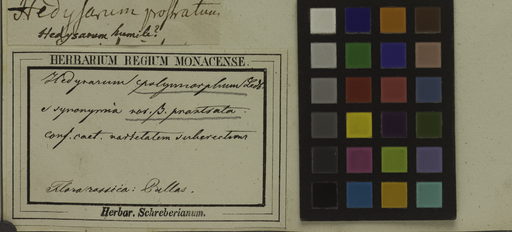 Hedysarum prostratum
Hedysarum humile?
HERBARIUM REGIUM MONACENSE.
Hedysarum polymorphum Led.
e synonymia var. β. prostrata.
Conf. caet. varietatem suberectam
Flora rossica: Pallas.
Herbar. Schreberianum.